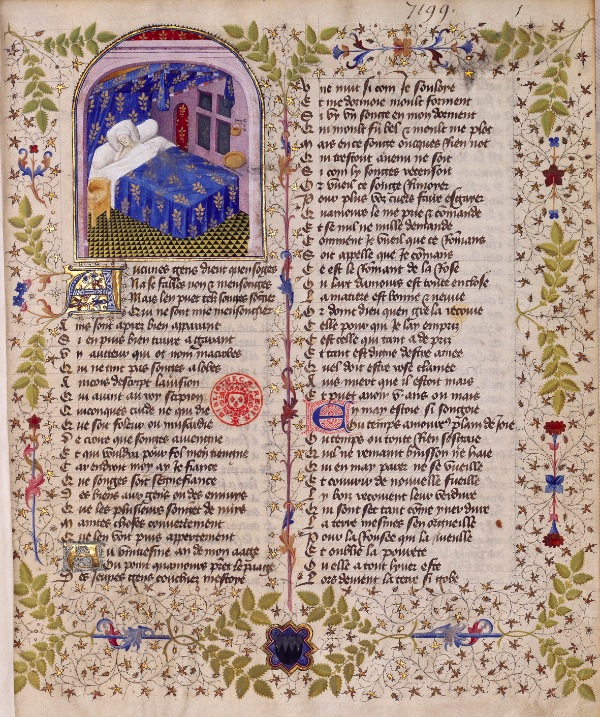 7199.
1
Aucunes gens dient quen songes
Na se fables non et mensonges
Mais len puet telz songes songier
Qui ne sont mie mensongier
Ains sont apres bien apparant
Si en puis bien traire a garant
Vn aucteur qui ot nom macobes
Qui ne tint pas songes a lobes
Aincois descript lavision
Qui avint au roy scipion
Quiconques cuide ne qui die
Que soit foleur ou musardie
De croire que songes aviengne
Et qui vouldra pour fol men tiengne
Car endroit moy ay je fiance
Que songes soit segnefiance
Des biens aux gens ou des ennuys
Que les plusieurs songent de nuis
Maintes choses couvertement
Que len voit puis appertement
Au vintiesme an de mon aage
Ou point quamours prent le paage
Des jeunes gens couchier mestoye
Vne nuit si com je souloye
Et me dormoie moult forment
Si vy un songe en mon dorment
Qui moult fu bel et moult me plot
Mais en ce songe oncques rien not
Qui trestout avenu ne soit
Si com ly songes recensoit
Or vueil ce songe rimoyer
Pour plus voz cuers faire esgayer
Quamours le me prie et commande
Et se nul ne nulle demande
Comment je vueil que ce rommans
Soit appelle que je commans
Ce est le rommant de la rose
Ou lart damours est toute enclose
La matiere est bonne et neuve
Or doint dieu quen gre la recoive
Celle pour qui je lay empris
Cest celle qui tant a de pris
Et tant est digne destre amee
Quel doit estre rose clamee
Avis miert que il estoit mais
Et puet avoir v. ans ou mais
En may estoie si songoie
Ou temps amoureux plain de joie
Ou temps ou toute rien sesgaie
Quil ne remaint buisson ne haie
Qui en may parer ne se vueille
Et couvrir de nouvelle fueille
Ly boys recoivent leur verdure
Qui sont sec tant come yver dure
La terre mesmes sen orgueille
Pour la rousee qui la mueille
Et oublie la povrete
Ou elle a tout lyver este
Lors devient la terre si gobe